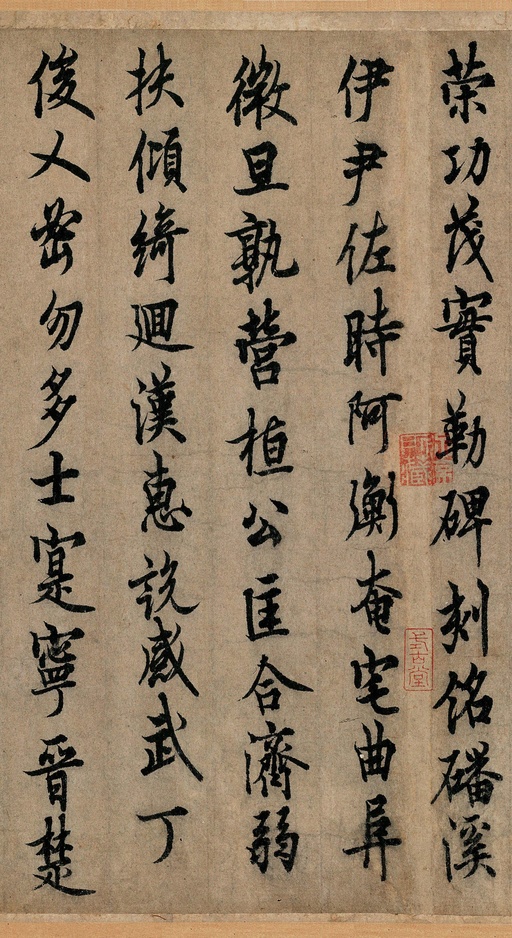 荣功茂實勒碑刻銘磻溪
伊尹佐時阿衡奄宅曲阜
微旦孰營桓公匡合濟弱
扶傾綺廻漢惠説感武丁
俊乂密勿多士寔寧晉楚
式古堂